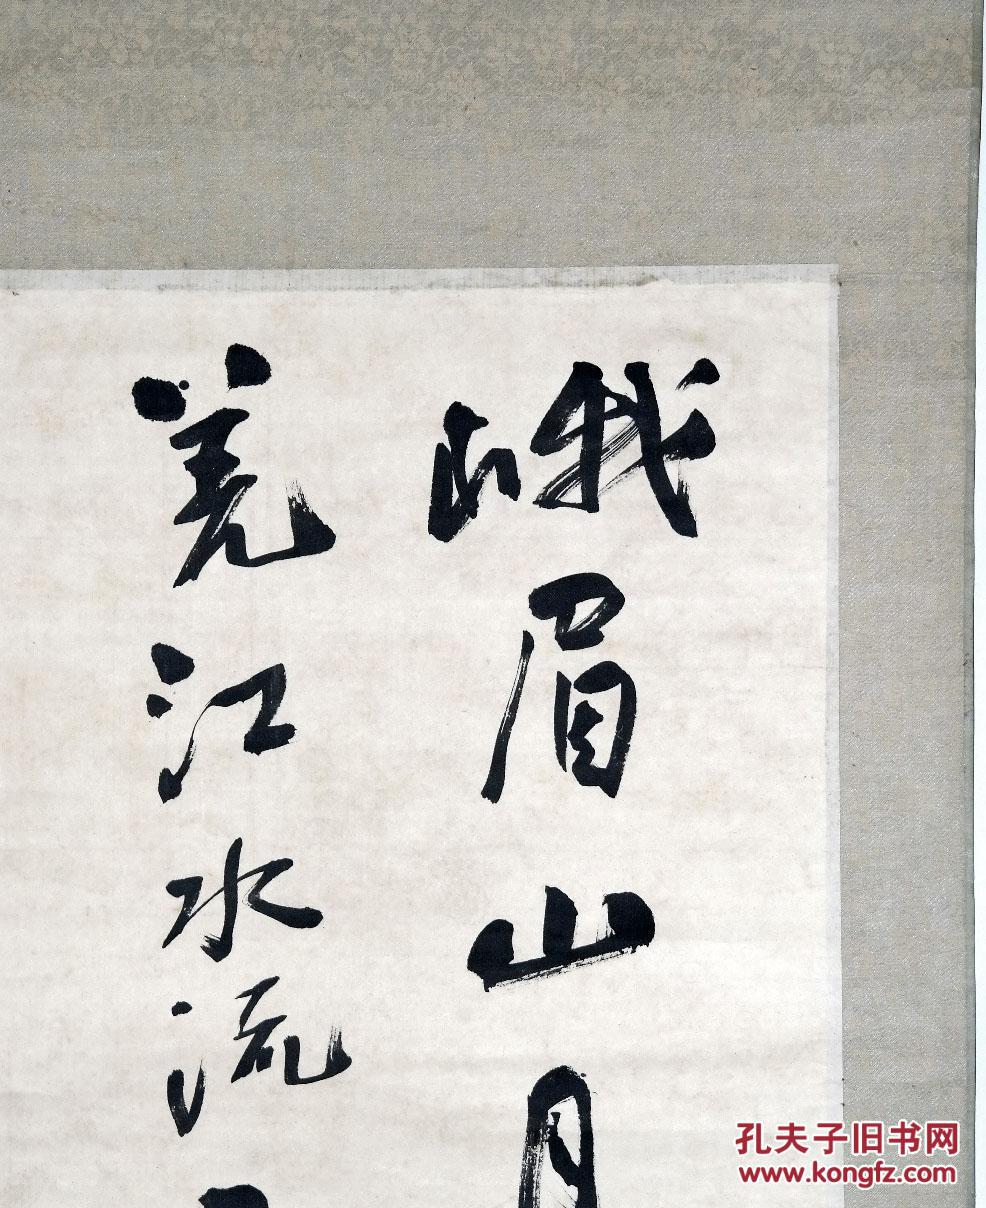 峨眉山月
羌江水流
孔夫子旧书网
www.kongfz.com